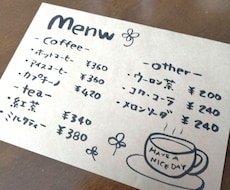 Menu
-Coffee-
ホットコーヒー ¥360
アイスコーヒー ¥360
カプチーノ ¥420
-tea-
紅茶 ¥340
ミルクティー ¥380
-other-
ウーロン茶 ¥200
コカ・コーラ ¥240
メロンソーダ ¥240
HAVE A
NICE DAY